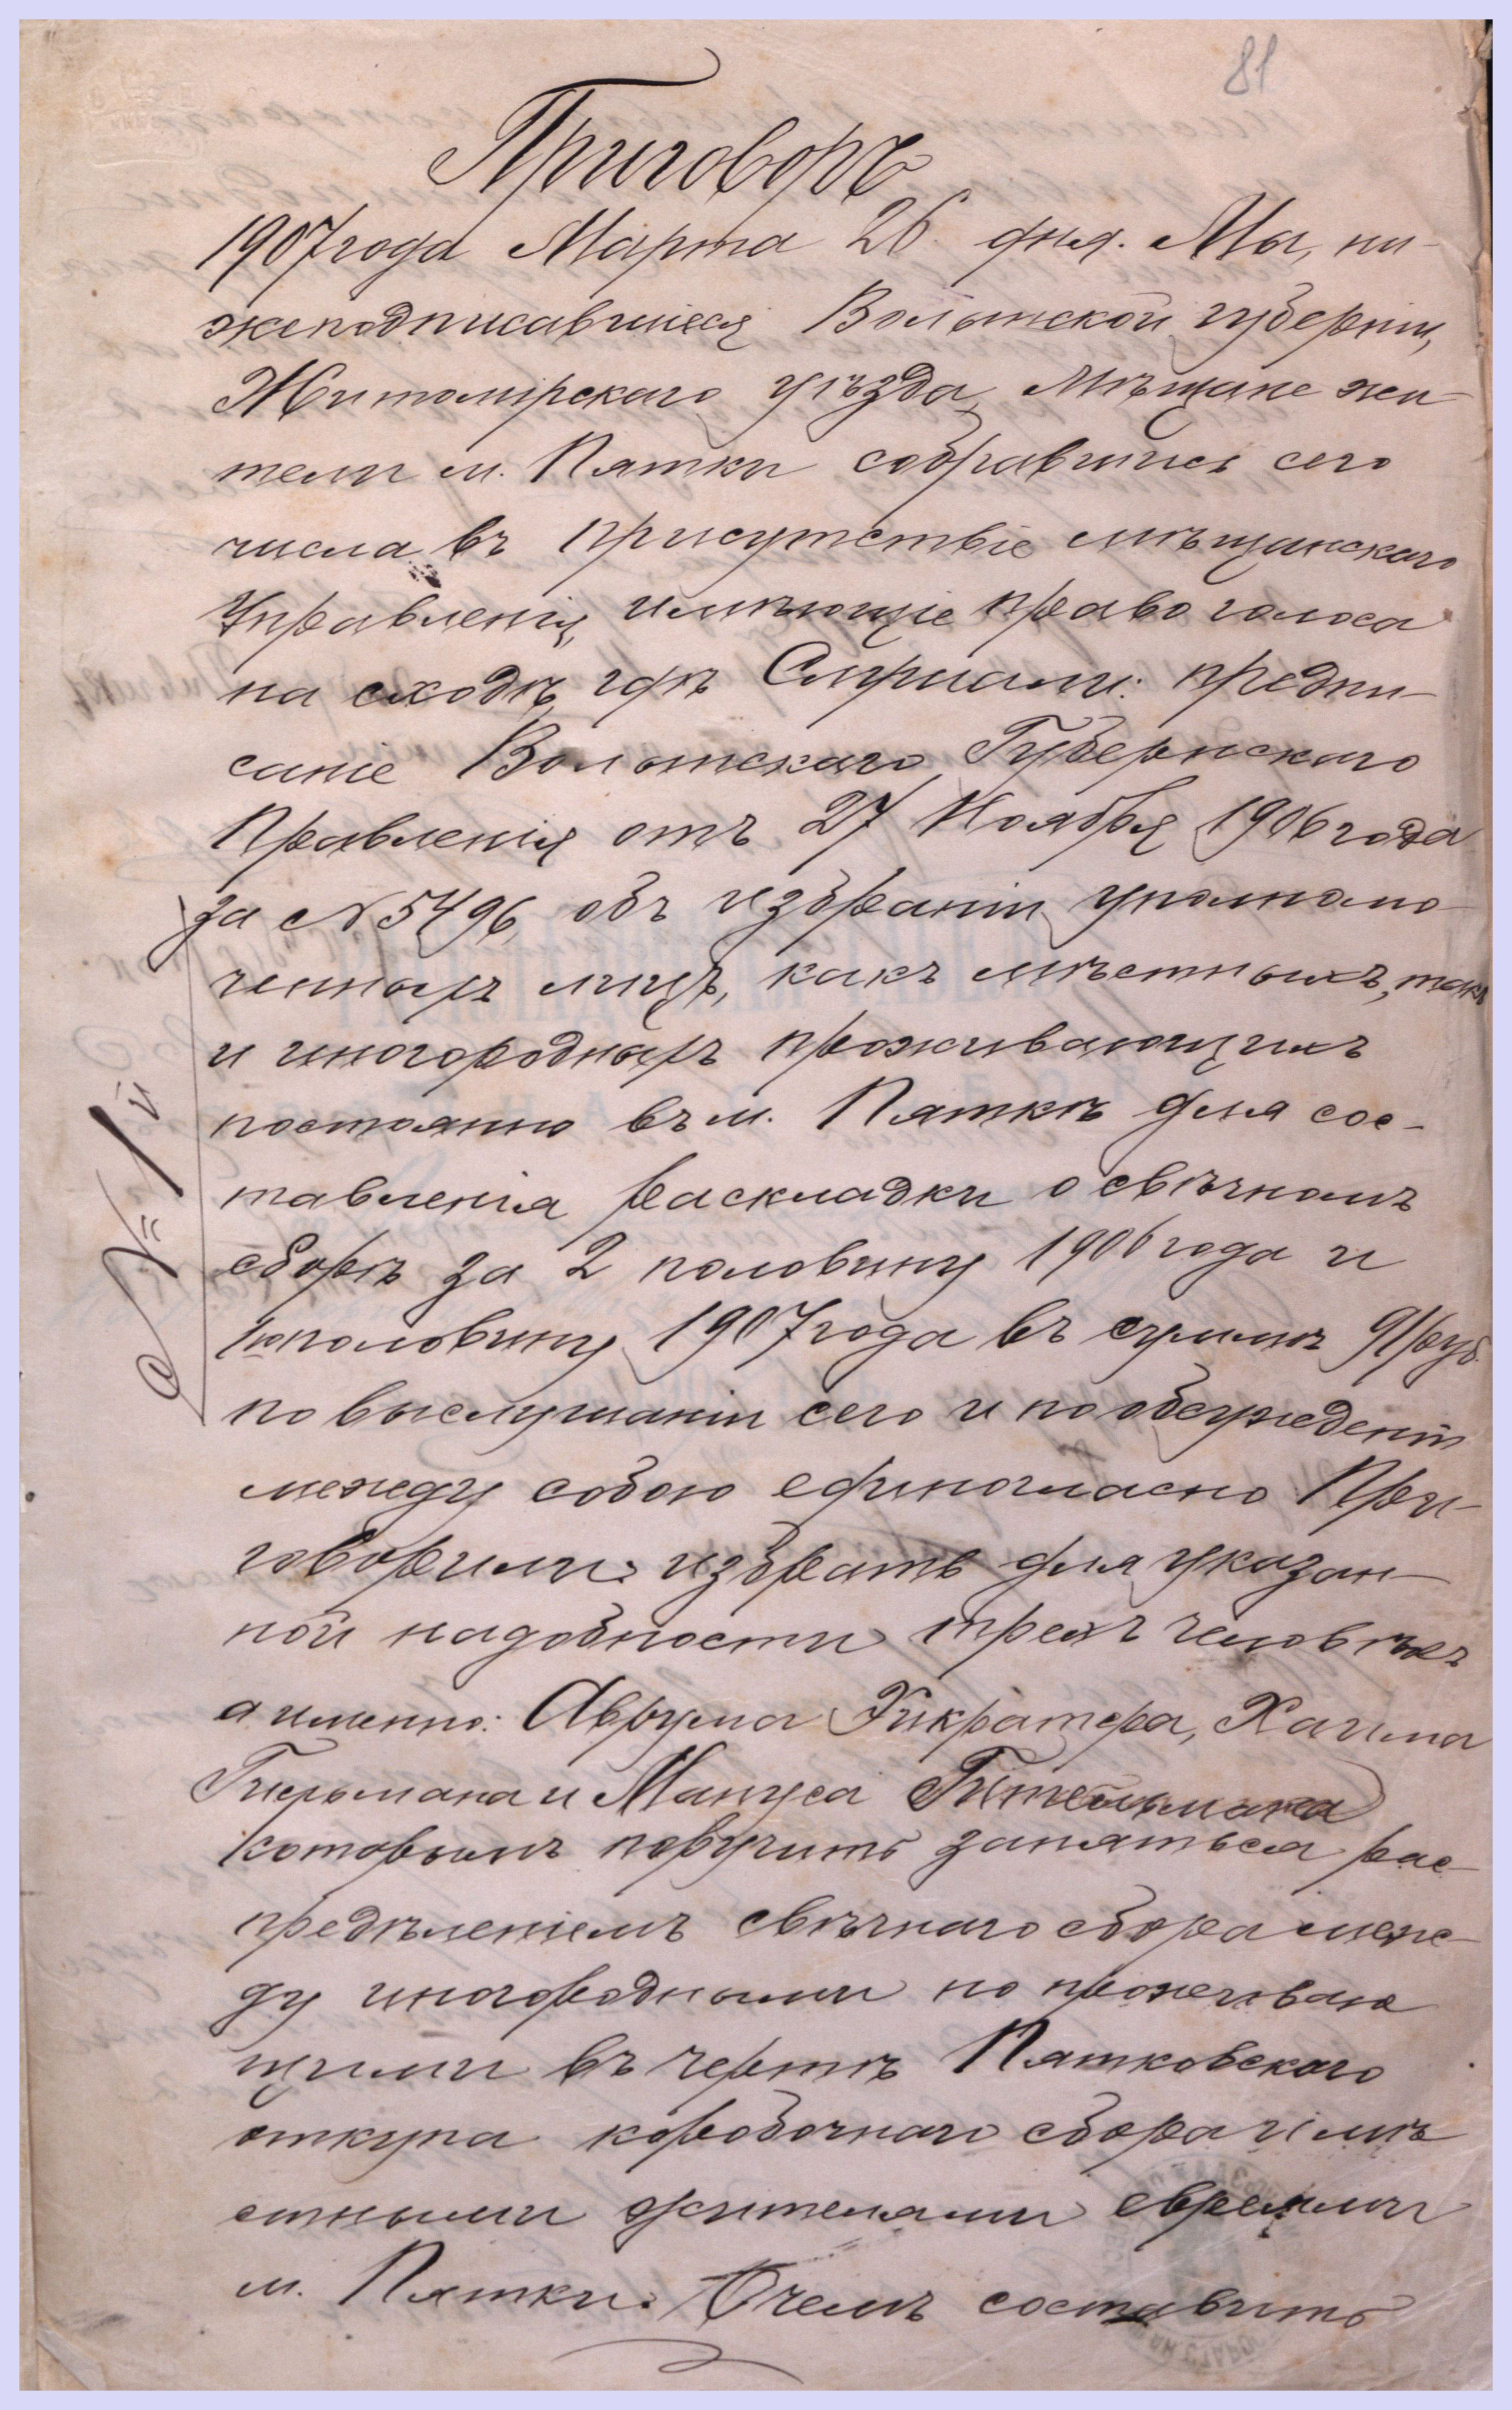 81
Приговоръ
1907 года Марта 26 дня. Мы, ни-
жеподписавшіеся Волынской губерніи,
Житомірскаго уѣзда, мѣщане жи-
тели м. Пятки собравшись сего
числа въ присутствіе мѣщанскаго
Управленія, имѣющіе право голоса
на сходѣ, гдѣ Слушали: предпи-
саніе Волынскаго Губернскаго
Правленія отъ 27 Ноября 1906 года
за № 5496, объ избраніи уполномо-
ченныхъ лицъ, какъ мѣстныхъ, такъ
и иногородныхъ проживающихъ
постоянно въ м. Пяткѣ для сос-
тавленія раскладки о свѣчномъ
сборѣ за 2 половину 1906 года и
1ю половину 1907 года въ суммѣ 91 руб.
по выслушаніи сего и по обсужденіи
между собою единогласно При-
говорили: избрать для указан-
ной надобности трехъ человѣкъ
а именно: Аврума Хикратера, Хаима
и Мануса Гительмана
которымъ поручить заняться рас-
предѣленіемъ свѣчнаго сбора меж-
ду иногородными но проживаю
щими въ чертѣ Пятковскаго
откупа коробочнаго сбора и мѣ
стными жителями евреями
м. Пятки. О чемъ составить
№ 1й